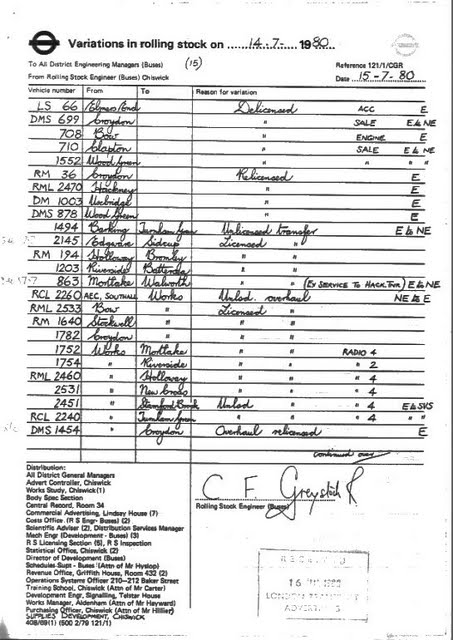 Variations in rolling stock on 14-7- 1980
To All District Engineering Managers (Buses) (15) Reference 121/1/CGR
From Rolling Stock Engineer (Buses) Chiswick Date 15-7-80
Vehicle number From To Reason for variation
LS 66 Elmers/End Delicensed ACC E
DMS 699 Croydon " SALE E & NE
708 Bow " ENGINE E
710 Clapton " SALE E & NE
1552 Wood Green " " " "
RM 36 Croydon Relicensed E
RML 2470 Hackney " E
DM 1003 Uxbridge " E
DMS 878 Wood Green " E
1494 Barking Turnham Green Unlicensed transfer E & NE
2145 Edgware Sidcup Licensed "
RM 194 Holloway Bromley " "
1203 Riverside Battersea " "
863 Mortlake Walworth " " (Ex SERVICE TO HACK. TOR) E & NE
RCL 2260 AEC, SOUTHALL Works Unlsd. overhaul NE & E
RML 2533 Bow " Licensed "
RM 1640 Stockwell " " "
1782 Croydon " " "
1752 Works Mortlake " " RADIO 4
1754 " Riverside " " " 2
RML 2460 " Holloway " " " 4
2531 " New Cross " " " 4
2451 " Stamford Brook Unlsd " " 4 E & SKS
RCL 2240 " Turnham Green " " " 4 " "
DMS 1454 " Croydon Overhaul relicensed E
continued over
Distribution:
All District General Managers
Advert Controller, Chiswick
Works Study, Chiswick (1)
Body Spec Section
Central Record, Room 34
Commercial Advertising, Lindsay House (7)
Costs Office. (R S Engr- Buses) (2)
Scientific Adviser (2), Distribution Services Manager
Mech Engr (Development - Buses) (3)
R S Licensing Section (5), R S Inspection
Statistical Office, Chiswick (2)
Director of Development (Buses)
Schedules Supt - Buses (Attn of Mr Hyslop)
Revenue Office, Griffith House, Room 432 (2)
Operations Systems Officer 210-212 Baker Street
Training School, Chiswick (Attn of Mr Carter)
Development Engr, Signalling, Telstar House
Works Manager, Aldenham (Attn of Mr Hayward)
Purchasing Officer, Chiswick (Attn of Mr Hillier)
SUPPLIES DEVELOPMENT, CHISWICK
408/69(1) (500 2/79 121/1)
C F Greystock
Rolling Stock Engineer (Buses)
RECEIVED
16 1980
LONDON TRANSPORT
ADVERTISING